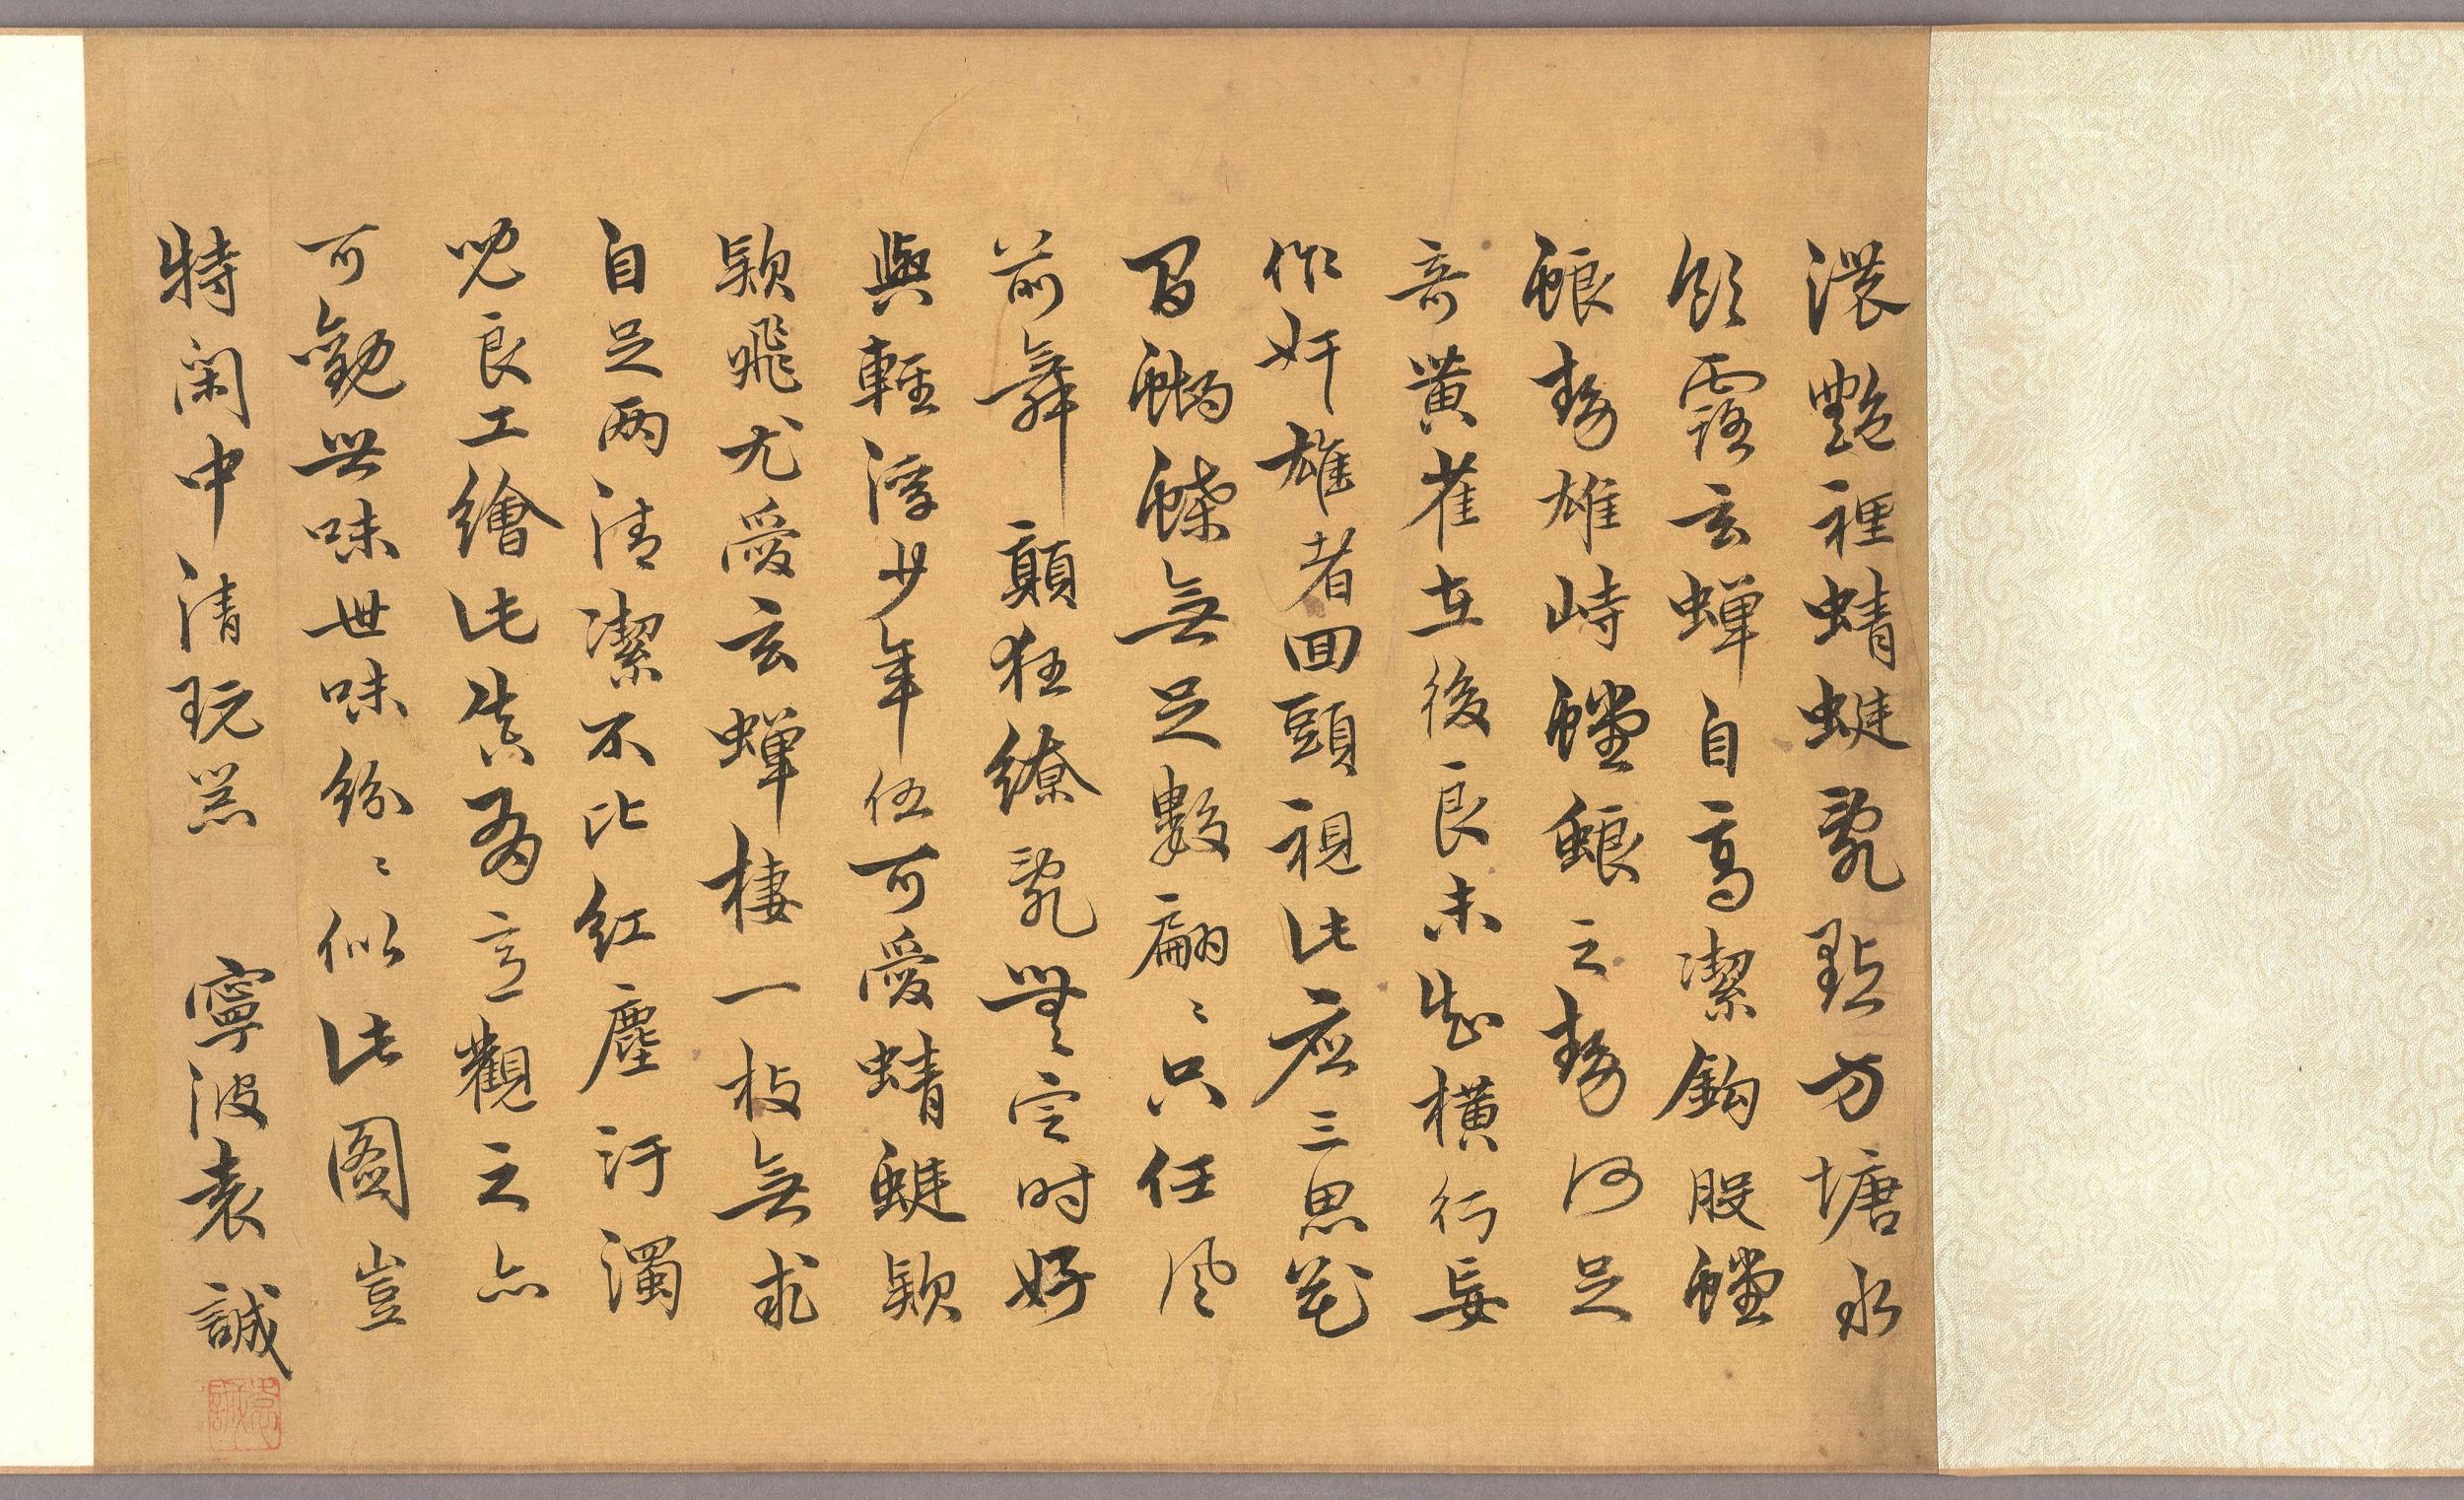 濃艷裡蜻蜓亂點方塘水
領露玄蟬自高潔鈎股螳
螂勢雄峙螳螂之勢何足
奇黃雀在後良未知橫行妄
作奸雄者回頭視此應三思花
間蝴蝶無足數翩〻只任風
前舞顛狂繚亂無定時好
與輕浮少年伍可愛蜻蜓款
款飛尤愛玄蟬棲一枝無求
自足兩清潔不比紅塵污濁
兒良工繪此真有意觀之亦
可觀世味世味紛〻似此圖豈
特閑中清玩器 寧波袁誠
袁誠